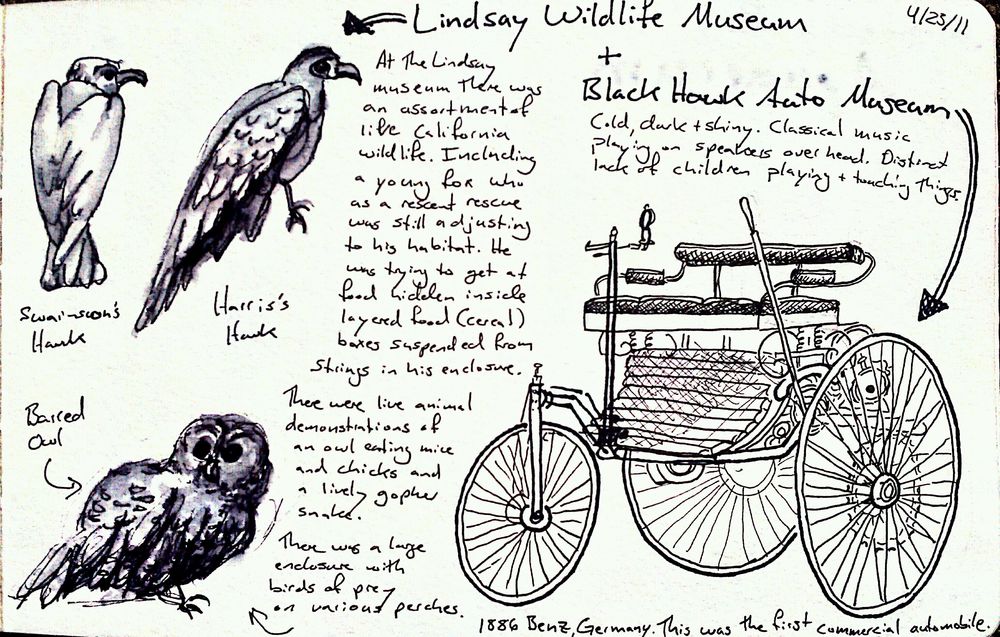 Lindsay Wildlife Museum
4/23/11
+
Black Hawk Auto Museum
Cold, dark + shiny. Classical music
playing on speakers over head. Distinct
lack of children playing + touching things.
At The Lindsay
museum There was
an assortment of
life California
wildlife. Including
a young fox who
as a rescent rescue
was still adjusting
to his habitat. He
was trying to get at
food hidden inside
layered food (cereal)
boxes suspended from
strings in his enclosure.
Swainson's
Hawk
Harris's
Hawk
Barred
Owl
There were live animal
demonstrations of
an owl eating mice
and chicks and
a lively gopher
snake.
There was a large
enclosure with
birds of prey
on various perches.
1886 Benz, Germany. This was the first commercial automobile.